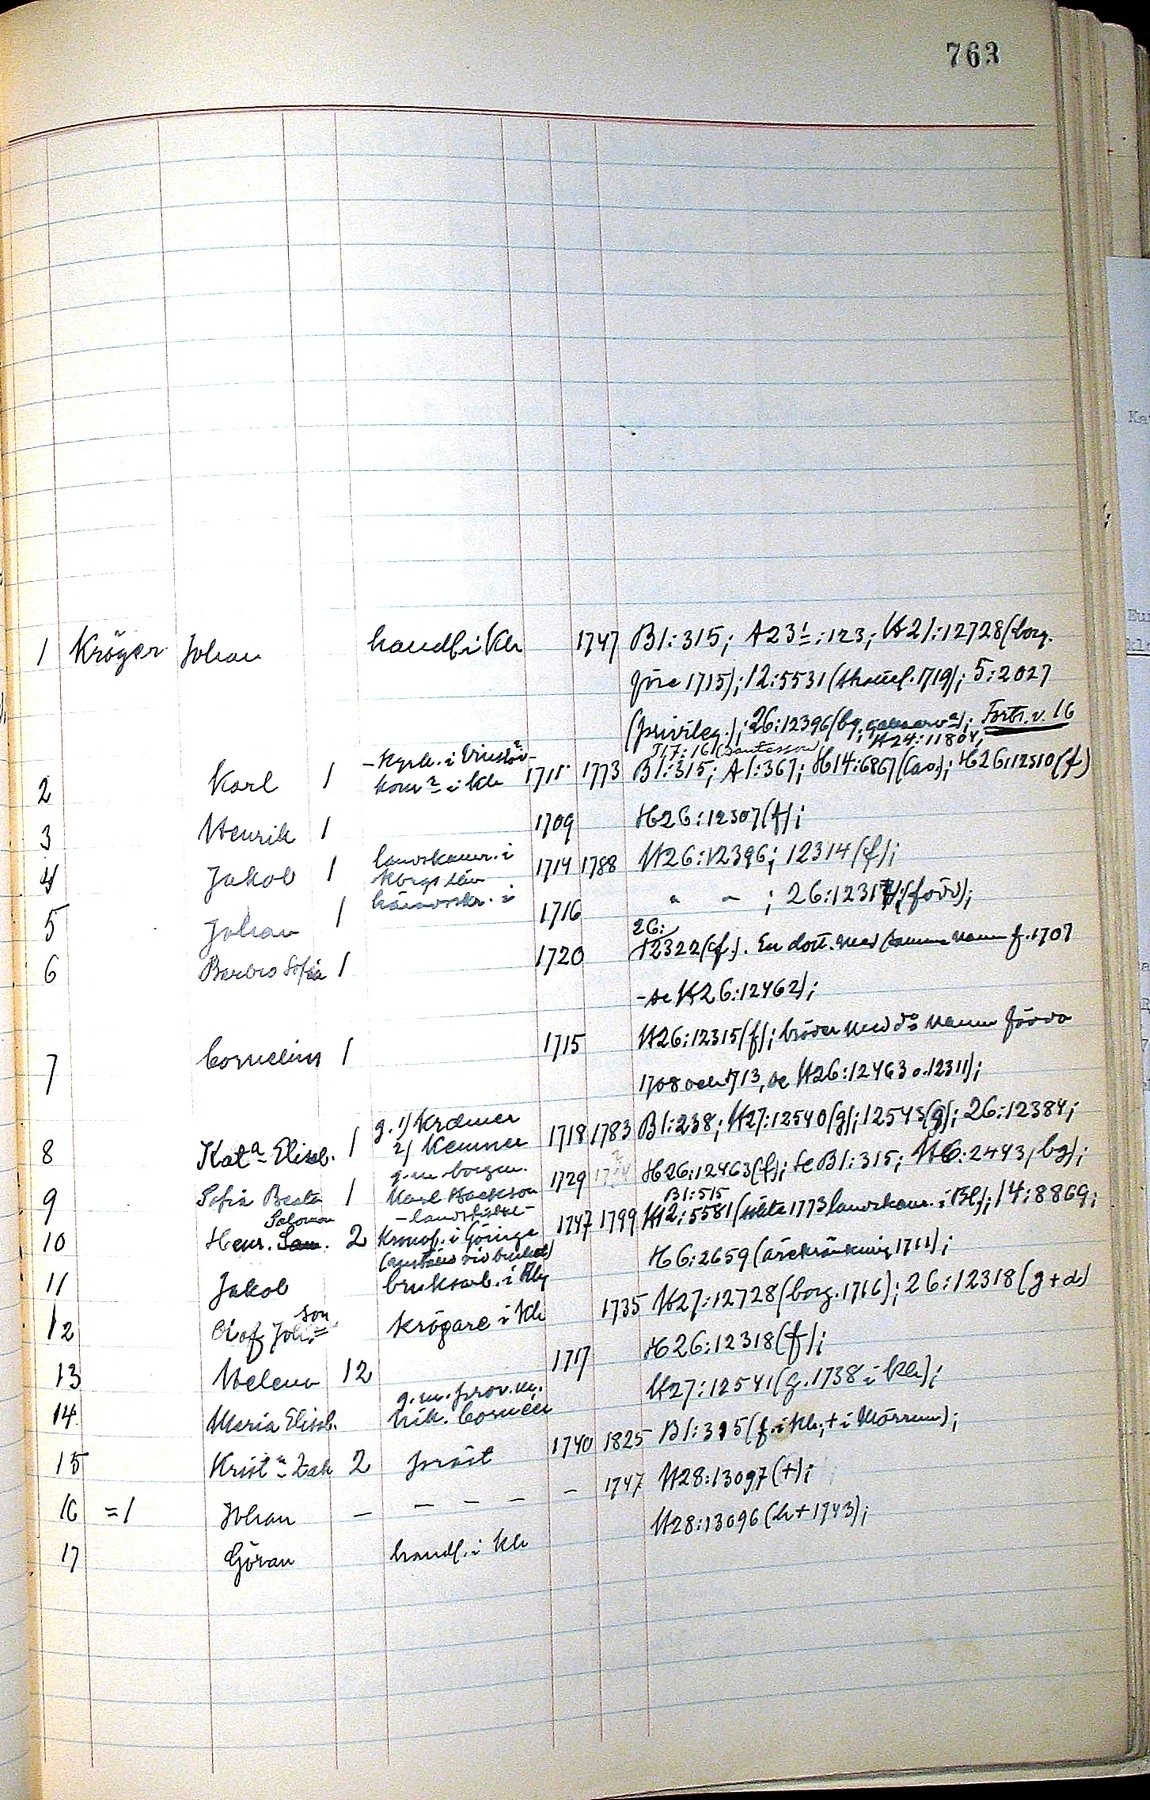 763
1 Kröger Johan handl. i Kh 1747 B1:315; A23:123; H27:12728 (borg.
före 1715); 12:5531 ( 1719); 5:2027
(privileg.); 26:12396 (bg. ); Forts. v. 16
H24:11804;
T17:161 (Santesson)
2 Karl 1 - Kyrkh. i Vinslöv - 1711 1773 B1:315; A1:367; H14:6867 ( ); H26:12310 (f)
kom:r i Kh
3 Henrik 1 1709 H26:12307 (f);
4 Jakob 1 landskamr. i 1714 1788 H26:12396; 12314 (f);
5 Johan 1 häradsskr. i 1716 " - ; 26:12317 (född);
6 Barbro Sofia 1 1720 26:12322 (f). En dott. med samma namn f. 1707
- se H26:12462);
7 Cornelius 1 1715 H26:12315 (f); bröder med d:o namn födda
1708 och 1713, se H26:12463 o. 12311);
8 Kat:a Elisab. 1 g. 1) Krämer 2) Kemner 1718 1783 B1:238; H27:12540 (g); 12543 (g); 26:12384;
9 Sofia Beata 1 g.m. borgm. Karl 1729 H26:12463 (f); se B1:315; H6:2443, bg);
B1:515
10 Henr. Salomon 2 - - Kronof. i Göinge 1747 1799 H12:5581 ( 1773 landskam. i Bl); 14:8869;
11 Jakob bruksarb. i H6:2659 (ärekränkning 1711);
12 Olof Joh:son krögare i Kh 1735 H27:12728 (borg. 1716); 26:12318 (g+d)
13 Helena 12 1717 H26:12318 (f);
14 Maria Elisab. g.m. prov.m. H27:12541 (g. 1738 i Kh);
15 Krist:n Zak 2 prost 1740 1825 B1:315 (f. i Kh; + i Mörrum);
16 =1 Johan - - - - - - 1747 H28:13097 (+);
17 Göran handl. i Kh H28:13096 (h + 1743);